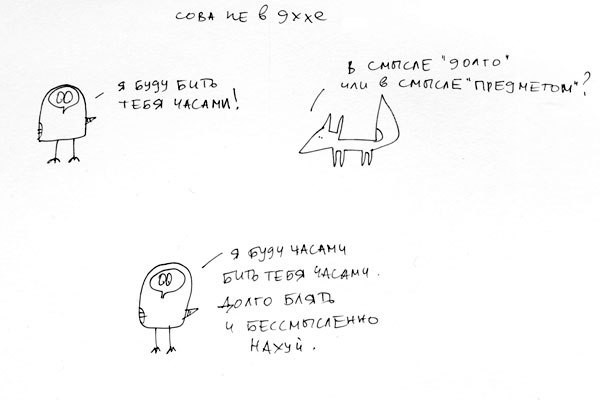 сова не в духе
я буду бить
тебя часами!
в смысле "долго"
или в смысле "предметом"?
я буду часами
бить тебя часами.
долго блять
и бессмысленно
нахуй.